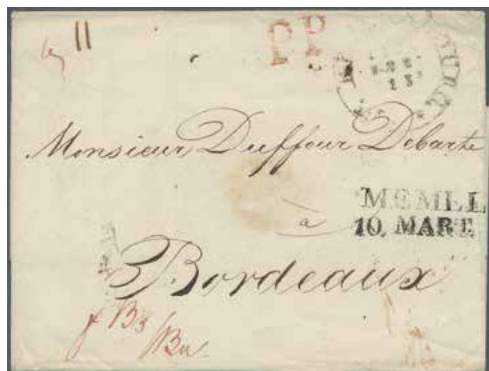 11
P.P.
Monsieur Duffour Debarte
MEMEL
10. MART.
à
Bordeaux